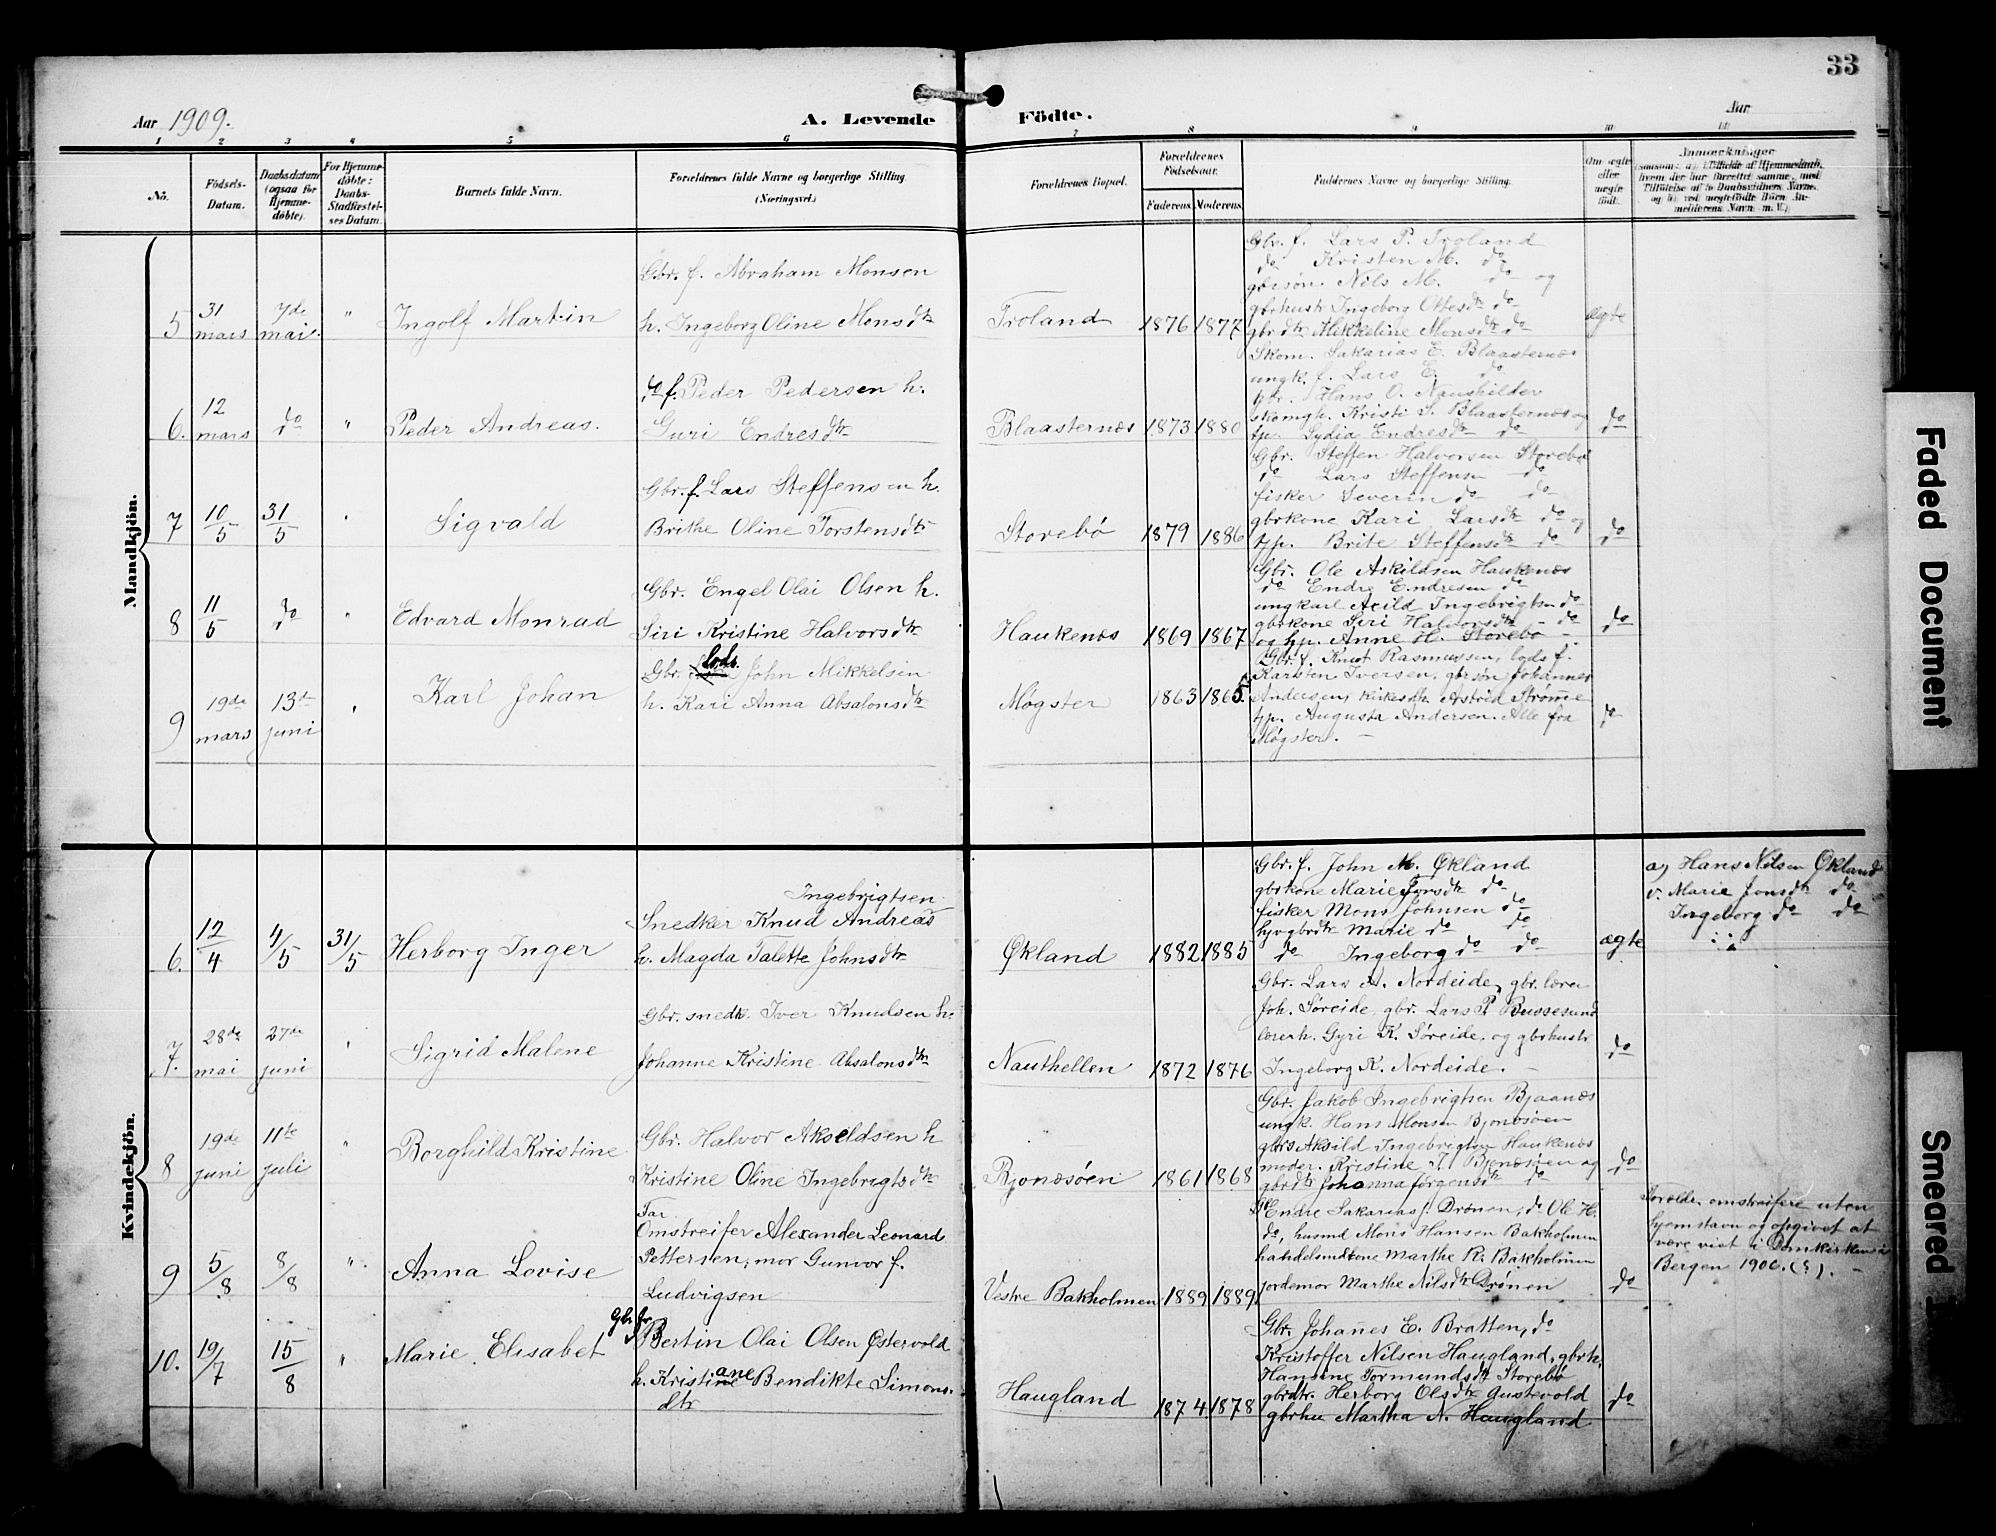 33
Aar 1909.
A. Levende Födte.
Aar
1 2 3 4 5 6 7 8 9 10 11
No.
Födsels-Datum.
Daabsdatum (ogsaa for Hjemme-döbte).
For Hjemme-döbte: Daabs-Stadfæstel-ses Datum.
Barnets fulde Navn.
Forældrenes fulde Navne og borgerlige Stilling. (Næringsvei.)
Forældrenes Bopæl.
Forældrenes Födselsaar.
Faderens. Moderens.
Faddernes Navne og borgerlige Stilling.
Om ægte eller uægte födt.
Anmærkninger
Mandkjön.
5 31 mars 7de mai. " Ingolf Martin
Gbr. f. Abraham Monsen
h. Ingeborg Oline Monsdtr
Troland 1876 1877
Gbr. f. Lars P. Troland
do Kristen M. do
gbrsøn Nils M. do og
gbrhustr Ingeborg Ottesdtr do
gbrdtr Mikkeline Monsdtr do
ægte
6. 12 mars do " Peder Andreas.
do f. Peder Pedersen h.
Guri Endresdtr
Blaasternæs 1873 1880
Skom. Sakarias E. Blaasternæs
ungk. f. Lars E. do
gbr. Hans O. Naushilder
skomgh. Kristi S. Blaasternæs og
tp. Lydia Endresdtr do
do
7 10/5 31/5 " Sigvald
Gbr. f. Lars Steffensen h.
Brithe Oline Torstensdtr
Storebö 1879 1886
Gbr. Steffen Halvorsen Storebø
do Lars Steffensen do
fisker Severin do do
gbrkone Kari Larsdtr do og
tp. Brite Steffensdtr do
do
8 11/5 do " Edvard Monrad
Gbr. Engel Olai Olsen h.
Siri Kristine Halvorsdtr
Haukenæs 1869 1867
Gbr. Ole Askildsen Haukenæs
do Endre Endresen do
ungkarl Arild Ingebrigtsen do
gbrkone Siri Halvorsdtr - do
og tp. Anne H. Storebø -
do
9 19de mars 13de juni " Karl Johan
Gbr. lods John Mikkelsen
h. Kari Anna Absalonsdtr
Møgster 1863 1865.
Gbr. f. Knut Rasmussen, lods f.
Karsten Iversen, gbrsøn Johannes
Andersen, kirkesth. Astrid Strømme
tp. Augusta Andersen. Alle fra
Møgster. -
do
Kvindekjön.
6. 12/4 4/5 31/5 Herborg Inger
Ingebrigtsen
Snedker Knud Andreas
h. Magda Talette Johnsdtr
Økland 1882 1885
Gbr. f. John M. Økland
gbrkone Marie Jonsdtr do
fisker Mons Johnsen do
hjvgbrdtr Marie do do
do Ingeborg do do
ægte
a) Hans Nilsen Økland
v. Marie Jonsdtr do
Ingeborg do do
7. 28de mai 27de juni " Sigrid Malene
Gbr. snedk. Iver Knudsen h.
Johanne Kristine Absalonsdtr
Nauthellen 1872 1876
Gbr. Lars A. Nordeide, gbr. lærer
Joh. Søreide, gbr. Lars P. Bussesund
lærerh. Gyri K. Søreide, og gbrhustr
Ingeborg K. Nordeide. -
do
8 19de juni 11te juli " Borghild Kristine
Gbr. Halvor Akseldsen h
Kristine Oline Ingebrigtsdtr
Bjonæsöen 1861 1868
Gbr. Jakob Ingebrigtsen Bjaanæs
ungk. Hans Monsen Bjonæsøen
gbrs Aksild Ingebrigtsen Haukenæs
moder. Kristine I. Bjonæsøen og
gbrdtr Johanna Jørgensdtr do
do
9 5/8 8/8 " Anna Lovise
Far
Omstreifer Alexander Leonard
Pettersen, mor Gunvor f.
Ludvigsen
Vestre Bakholmen 1889 1889
Endre Sakarias f. Drønen, do Ole H.
do, husmd Mons Hansen Bakholmen
handelsmdkone Marthe R. Bakholmen
jordemor Marthe Nilsdtr Drønen
do
Foreldr. omstreifere uten
hjemstavn og opgivet at
være viet i Domkirken i
Bergen 1906. (?). -
10. 19/7 15/8 " Marie Elisabet
Gbr. f.
Bertin Olai Olsen Østervold
h. Kristiane Bendikte Simons-
dtr
Haugland 1874 1878
Gbr. Johannes E. Bratten, do
Kristoffer Nilsen Haugland, gbrh.
Hansine Tormundsdtr Storebø
gbrdtr. Herborg Olsdtr Austevold
gbrhu Martha N. Haugland
do
Faded Document
Smeared